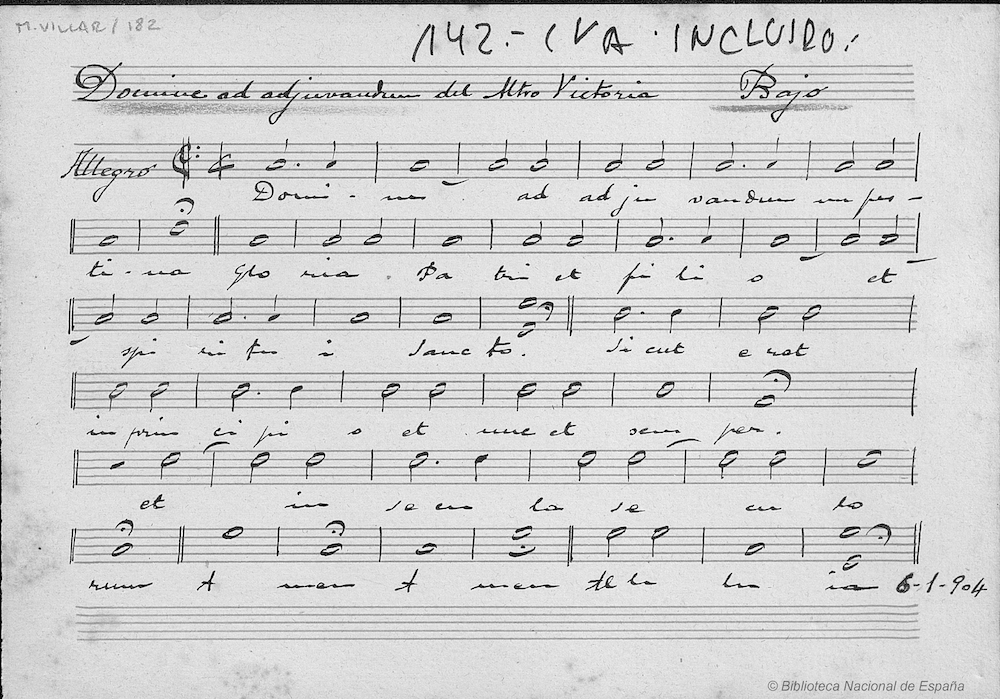 M. VILLAR / 182
142.- IVA INCLUIDO.
Domine ad adjuvandum del Mtro Victoria Bajo
Allegro
Domi - ne ad adju vandum um fes -
ti - na Glo ria . Pa tri et fi li o et
spi ri tu i Sancto. Si cut erat
in prin ci pi o et nunc et sem per.
et in se cu la se cu lo
rum A men A men Alle lu ia 6-1-904
© Biblioteca Nacional de España